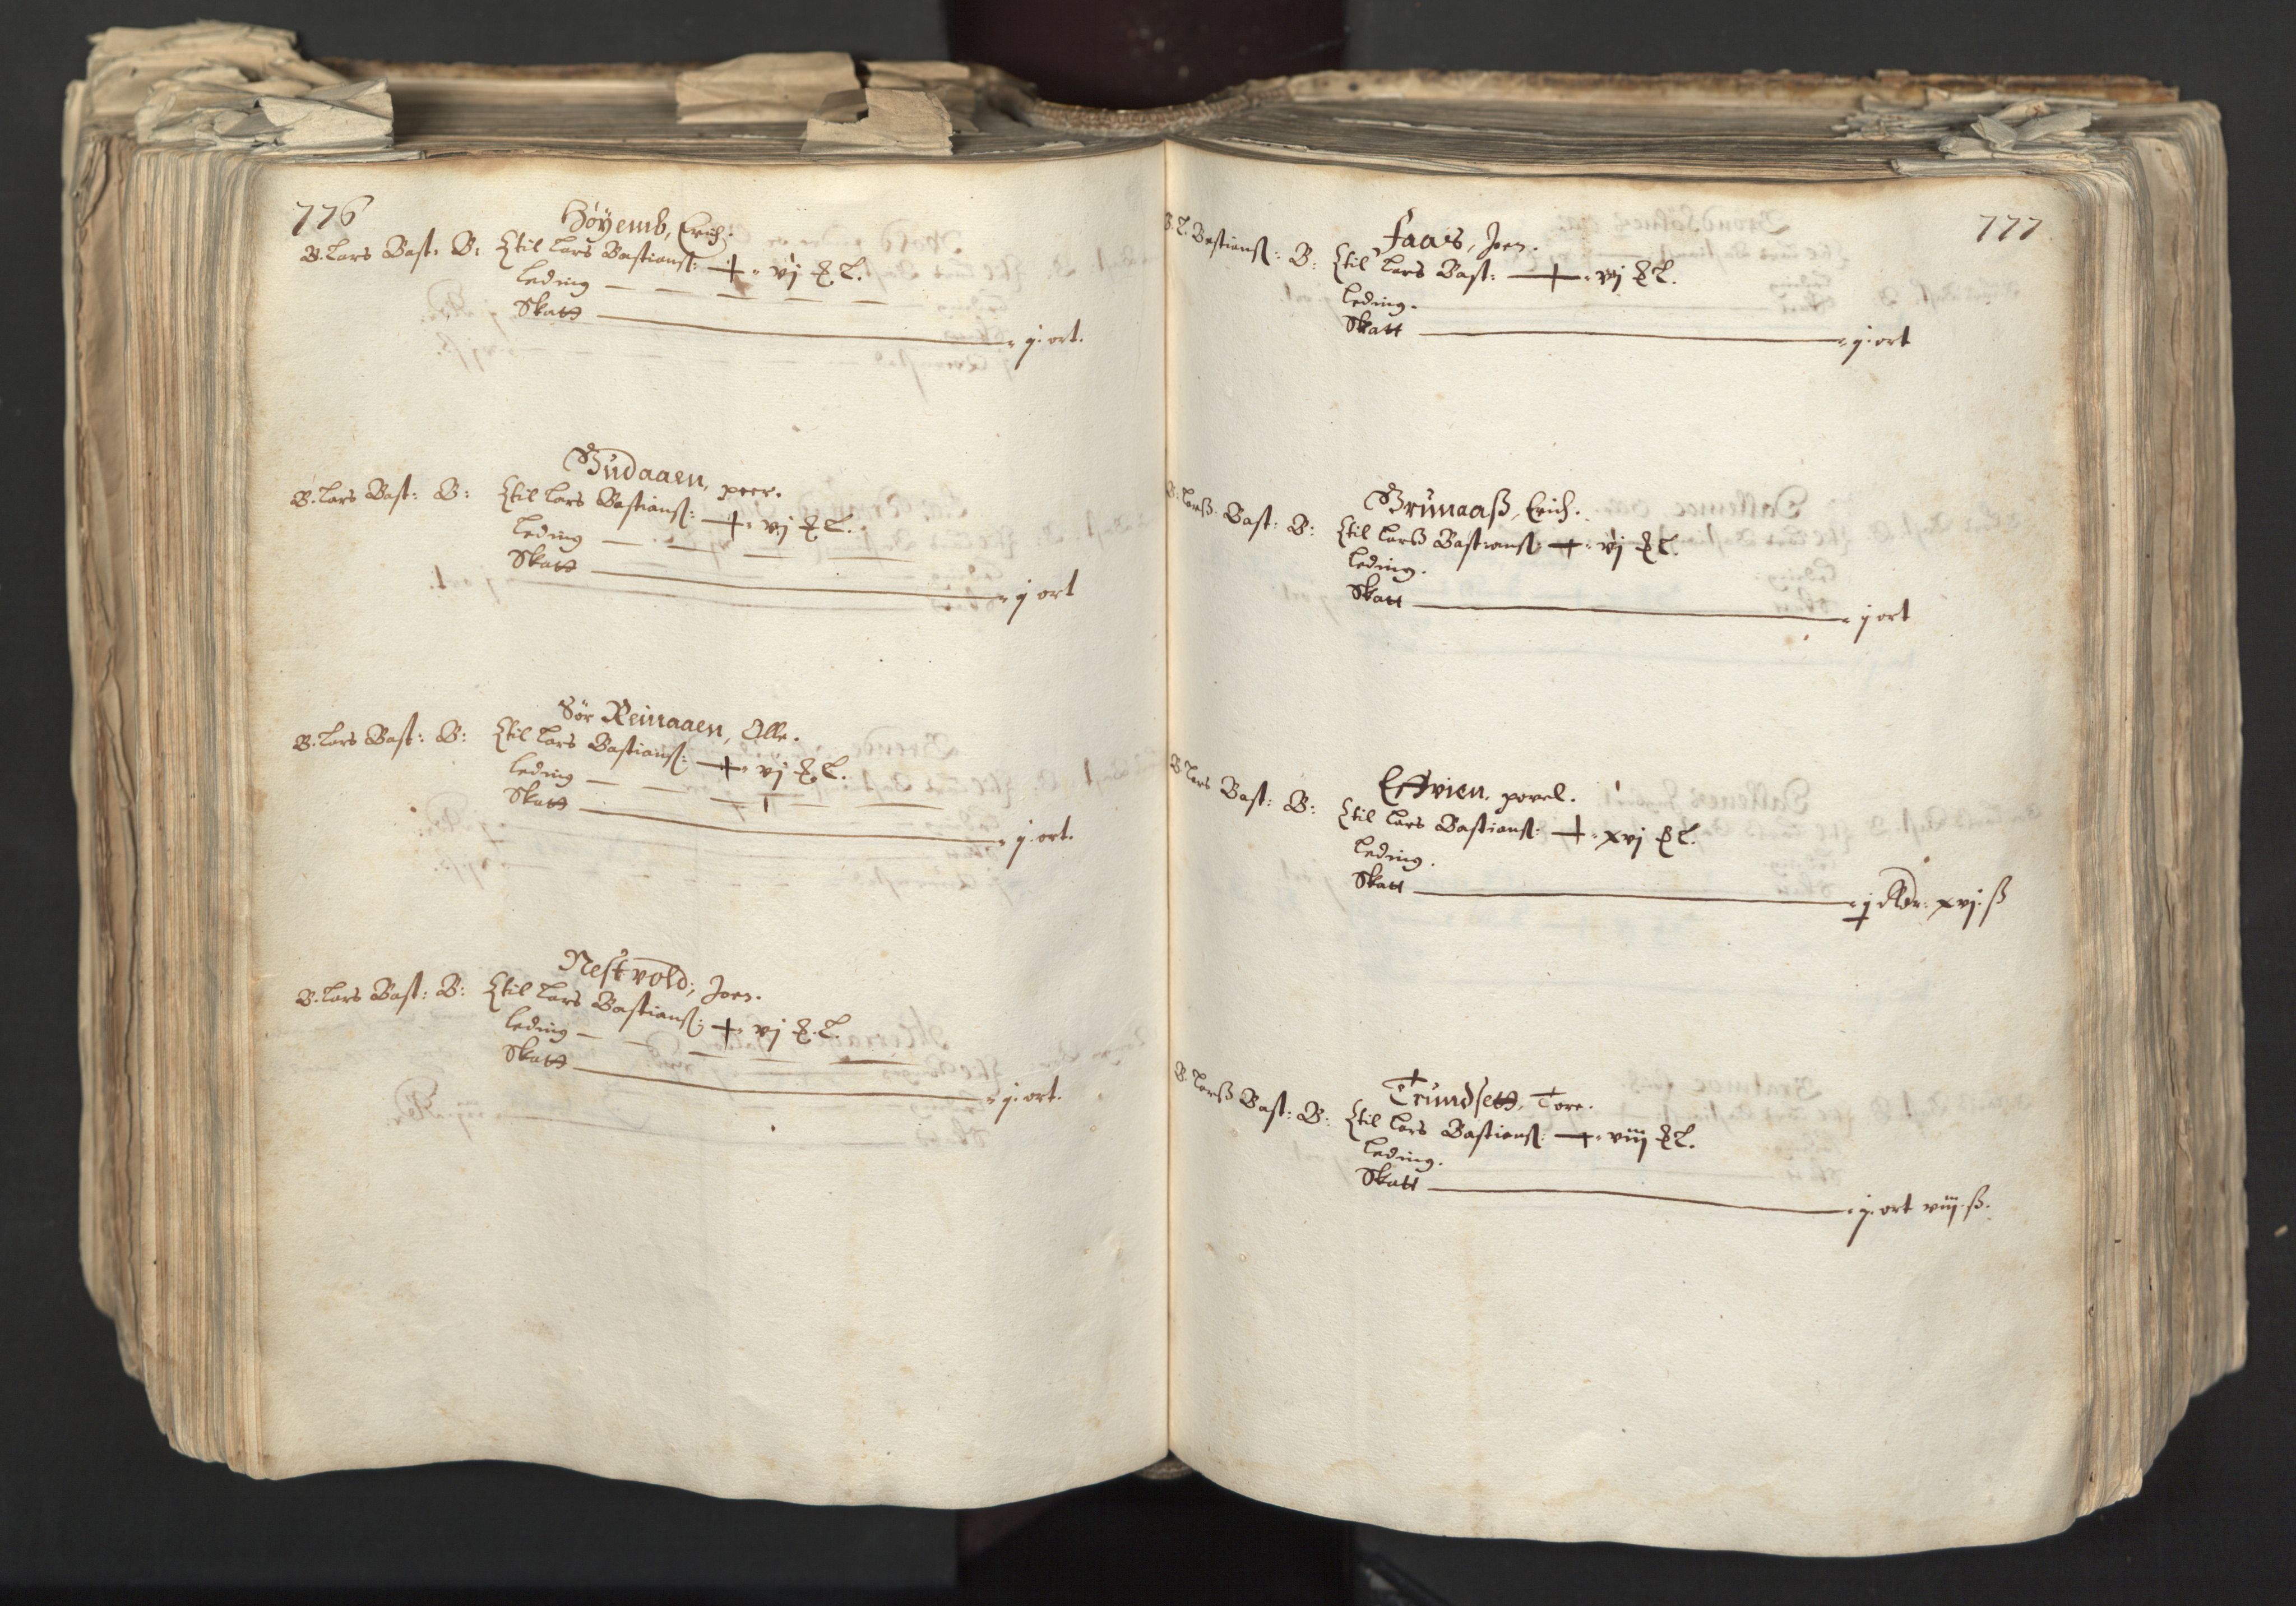 776
Höyemb, Erich.
B. Lars Bast: B: Etil Lars Bastianß: + vj L.
Leding
Skatt j. ort.
Budaaen, peer.
B. Lars Bast: B: Etil Lars Bastianß: + vj L.
Leding
Skatt j ort
Sör Reinaaen, Olle.
B. Lars Bast: B: Etil Lars Bastianß: + vj L.
Leding
Skatt j. ort.
Nestvold, Joen.
B. Lars Bast: B: Etil Lars Bastianß: + vj L.
Leding
Skatt j. ort.
777
Faas, Joen.
B. L. Bastianß: B: Etil Lars Bast: + vj L.
Leding.
Skatt j. ort
Brunaaß, Erich.
B. Larß Bast: B: Etil Larß Bastianß: + vj L.
Leding.
Skatt j ort
Effvien, povel.
B Lars Bast: B: Etil Lars Bastianß: + xvj L.
Leding.
Skatt j Rdr: xvj. ß
Trundsett, Tore.
B. Larß Bast: B: Etil Lars Bastianß: + viij L.
Leding.
Skatt j. ort viij. ß.